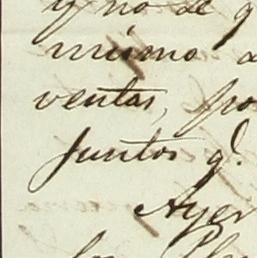 y no de q
mismo a
ventas, po
juntos q.
Ayer